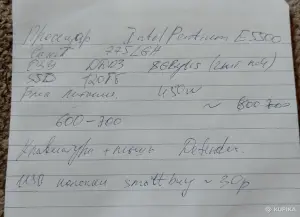 Процессор Intel Pentium E5500
Сокет 775LGA
ОЗУ DDR3 8GBytes
SSD 120Гб
Блок питания 450W
~ 600-700
600-700
Клавиатура + мышь Defender
USB колонки smartbuy ~ 30р
КУПИКА